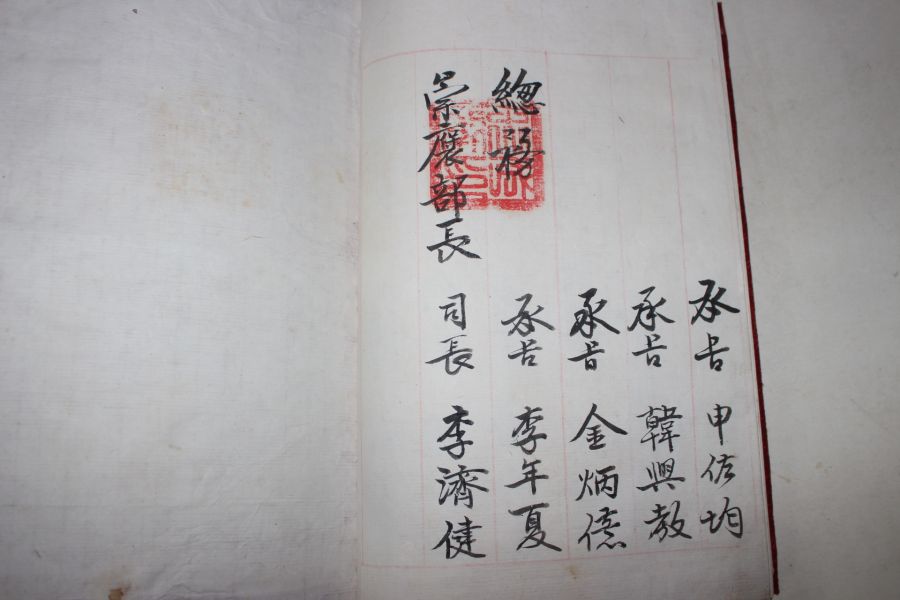 承旨 申佑均
承旨 韓興教
承旨 金炳億
緫務 承旨 李年夏
崇褒部長 司長 李濟健